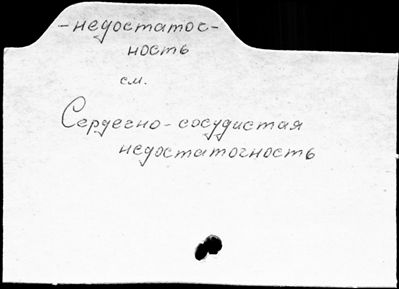 -недостаточ-
ность
см.
Сердечно-сосудистая
недостаточность